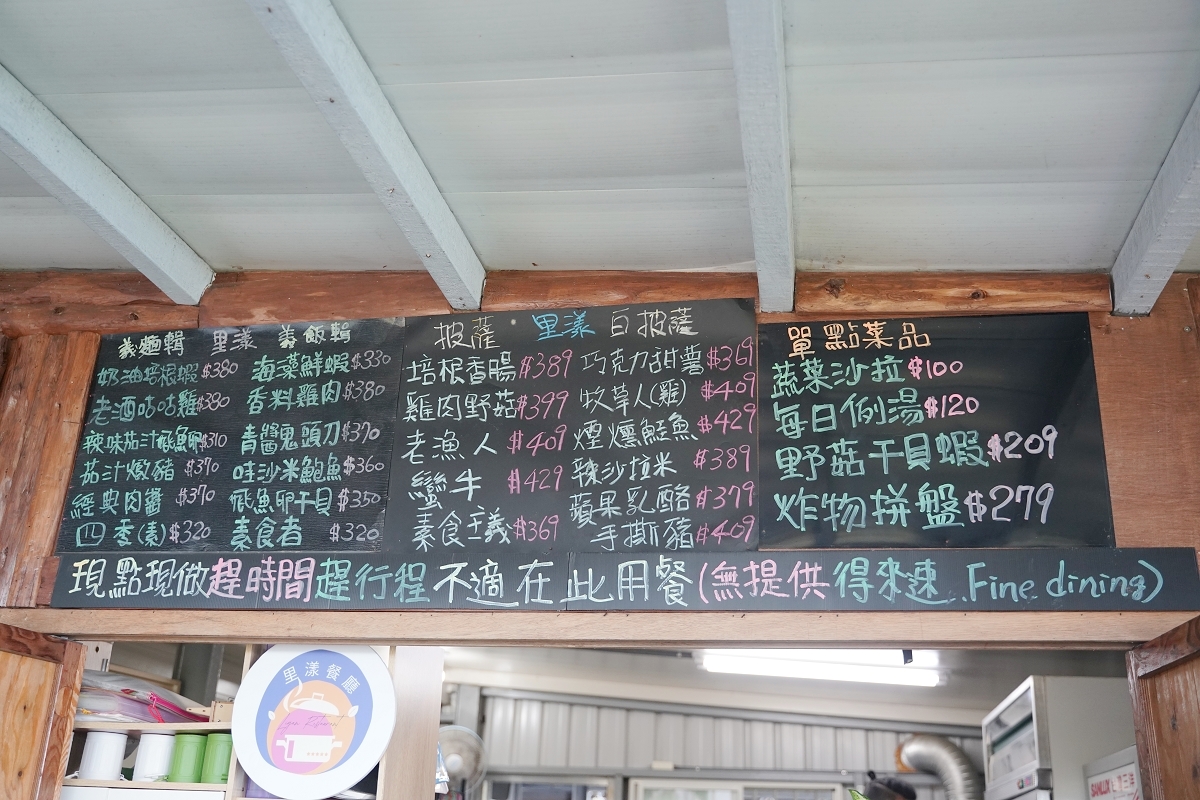 義麵輯 里漾 義飯輯
奶油培根蝦$380
老酒咕咕雞$380
辣味茄汁飛魚卵$310
茄汁燉豬 $370
經典肉醬 $370
四季(素)$320
海藻鮮蝦$330
香料雞肉$380
青醬鬼頭刀$370
哇沙米鮑魚$360
飛魚卵干貝$350
素食者 $320
披薩 里漾 白披薩
培根香腸$389
雞肉野菇$399
老漁人 $409
蠻牛 $429
素食主義$369
巧克力甜薯$369
牧草人(雞)$409
煙燻鮭魚$429
辣沙拉米 $389
蘋果乳酪$379
手撕豬$409
單點菜品
蔬菜沙拉$100
每日例湯$120
野菇干貝蝦$209
炸物拼盤$279
現點現做趕時間趕行程不適在此用餐(無提供得來速..Fine dining)
里漾餐廳
SANLUX